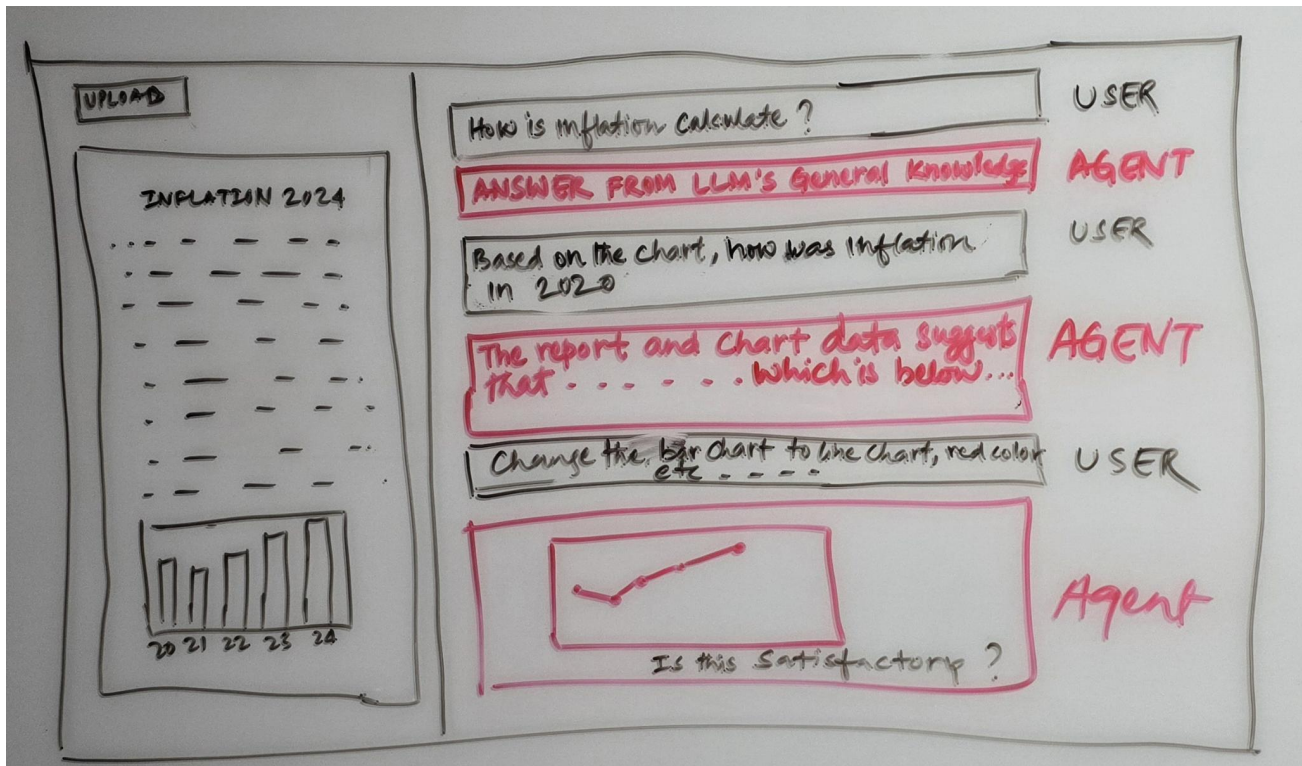 UPLOAD
INFLATION 2024
20 21 22 23 24
How is inflation calculate?
USER
ANSWER FROM LLM's General Knowledge
AGENT
Based on the chart, how was inflation
in 2020
USER
The report and chart data suggests
that . . . . . . . which is below...
AGENT
Change the bar chart to line chart, red color
etc - - - -
USER
Is this Satisfactory ?
Agent